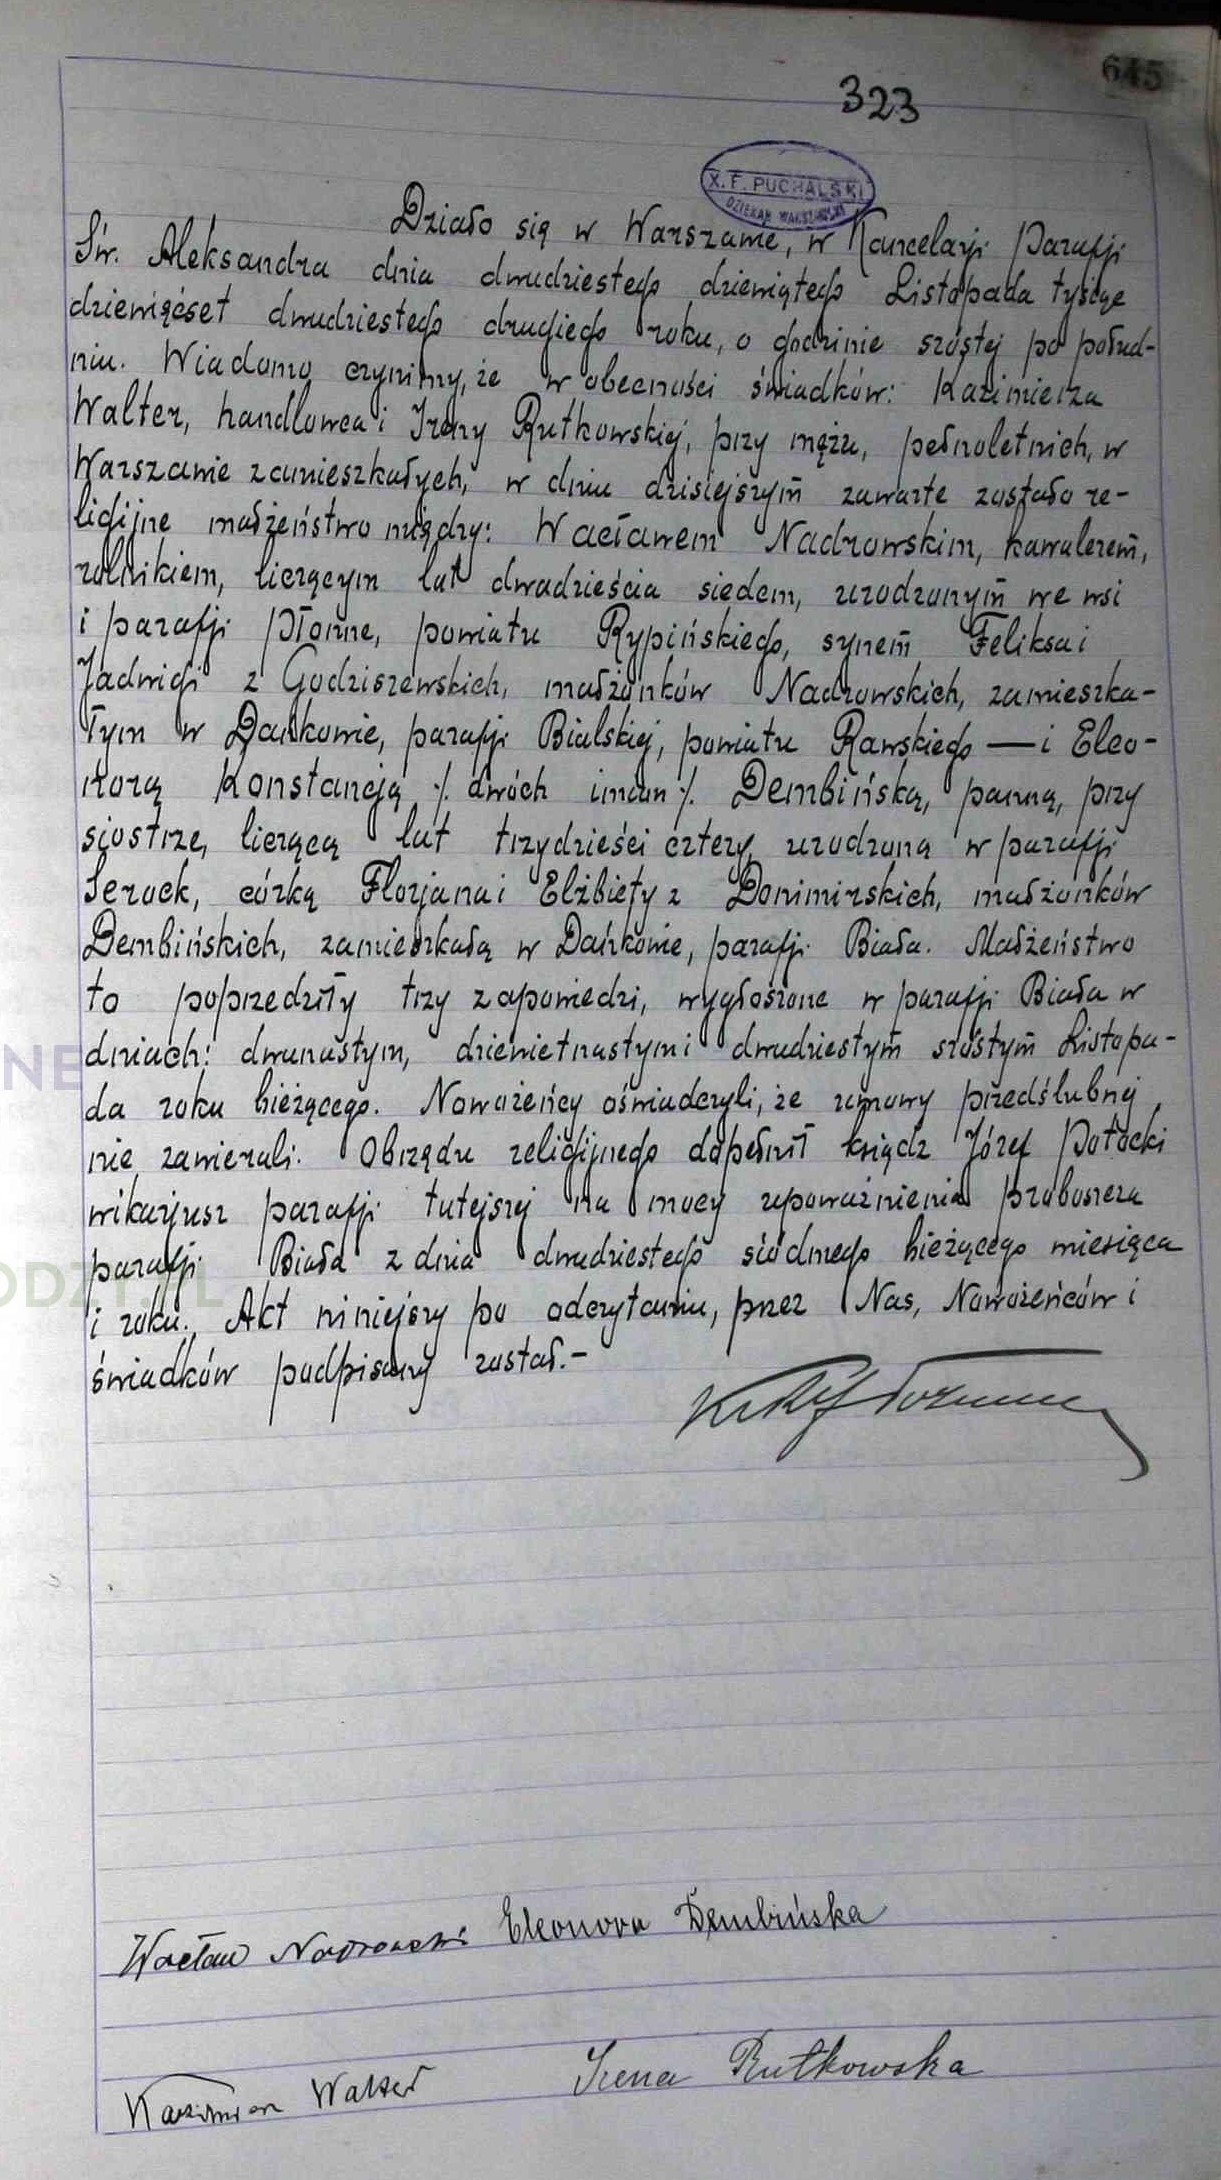 645
323
X. F. PUCHALSKI
DZIEKAN WARSZAWSKI
Działo się w Warszawie, w Kancelarji Parafji
Św. Aleksandra dnia dwudziestego dziewiątego Listopada tysiąc
dziewięćset dwudziestego drugiego roku, o godzinie szóstej po połud-
niu. Wiadomo czynimy, że w obecności świadków: Kazimierza
Walter, handlowca i Ireny Rutkowskiej, przy mężu, pełnoletnich, w
Warszawie zamieszkałych, w dniu dzisiejszym zawarte zostało re-
ligijne małżeństwo między: Wacławem Nadrowskim, kawalerem,
rolnikiem, liczącym lat dwadzieścia siedem, urodzonym we wsi
i parafji Płonne, powiatu Rypińskiego, synem Feliksa i
Jadwigi z Godziszewskich, małżonków Nadrowskich, zamieszka-
łym w Dańkowie, parafji Bialskiej, powiatu Rawskiego — i Eleo-
norą Konstancją /. dwóch imion /. Dembińską, panną, przy
siostrze, liczącą lat trzydzieści cztery, urodzoną w parafji
Serock, córką Florjana i Elżbiety z Donimirskich, małżonków
Dembińskich, zamieszkałą w Dańkowie, parafji Biała. Małżeństwo
to poprzedziły trzy zapowiedzi, wygłoszone w parafji Biała w
dniach: dwunastym, dziewietnastym i dwudziestym szóstym Listopa-
da roku bieżącego. Nowożeńcy oświadczyli, że umowy przedślubnej
nie zawierali. Obrzędu religijnego dopełnił ksiądz Józef Potocki
wikarjusz parafji tutejszej na mocy upoważnienia proboszcza
parafji Biała z dnia dwudziestego siódmego bieżącego miesiąca
i roku. Akt niniejszy po odczytaniu, przez Nas, Nowożeńców i
świadków podpisany został.-
Wacław Nadrowski Eleonora Dembińska
Kazimierz Walter Irena Rutkowska